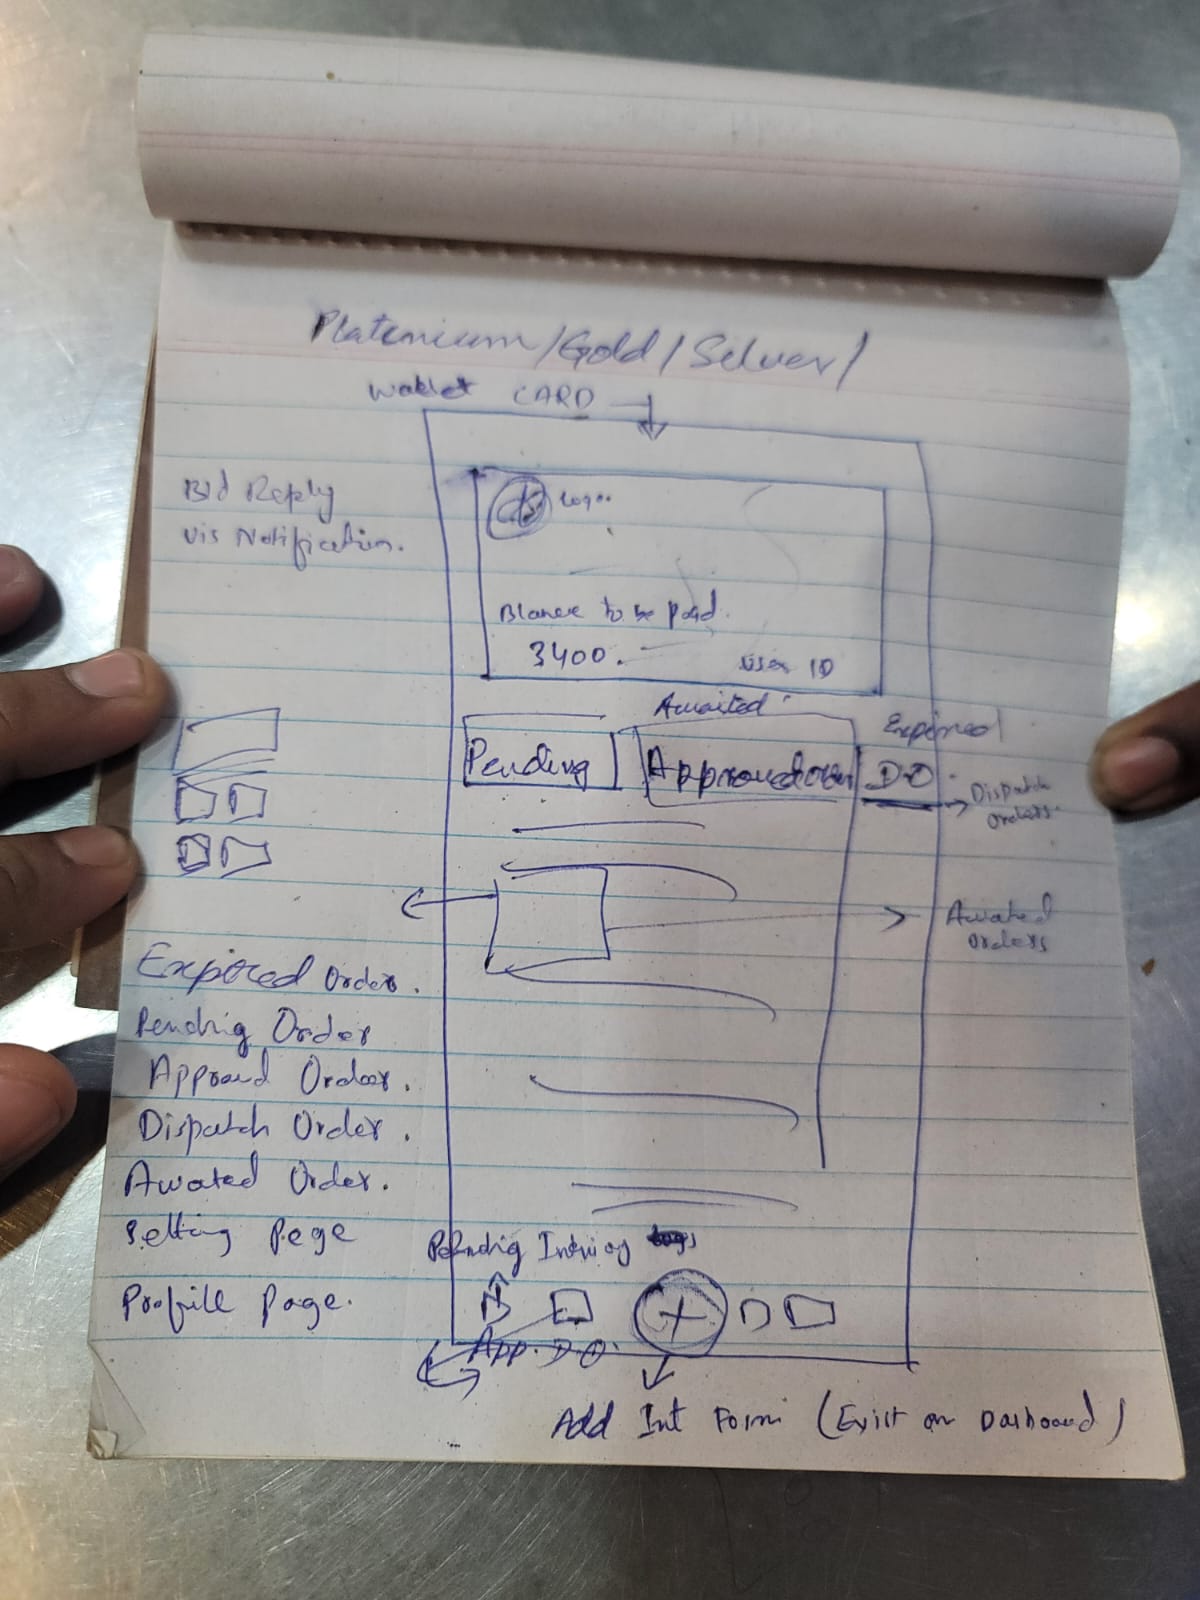 Platenium/Gold/Selver/
Wallet CARD
Bid Reply
vis Notification.
Logo
Blance to be paid.
3400.
User ID
Awaited
Expired
Pending
Approved
D.O
Dispatch
orders.
Awated
orders
Expired Order.
Pending Order
Approud Order.
Dispatch Order.
Awated Order.
Setting Pege
Profill Page.
App. D.O.
Add Int Form (Exist on Dashboad)